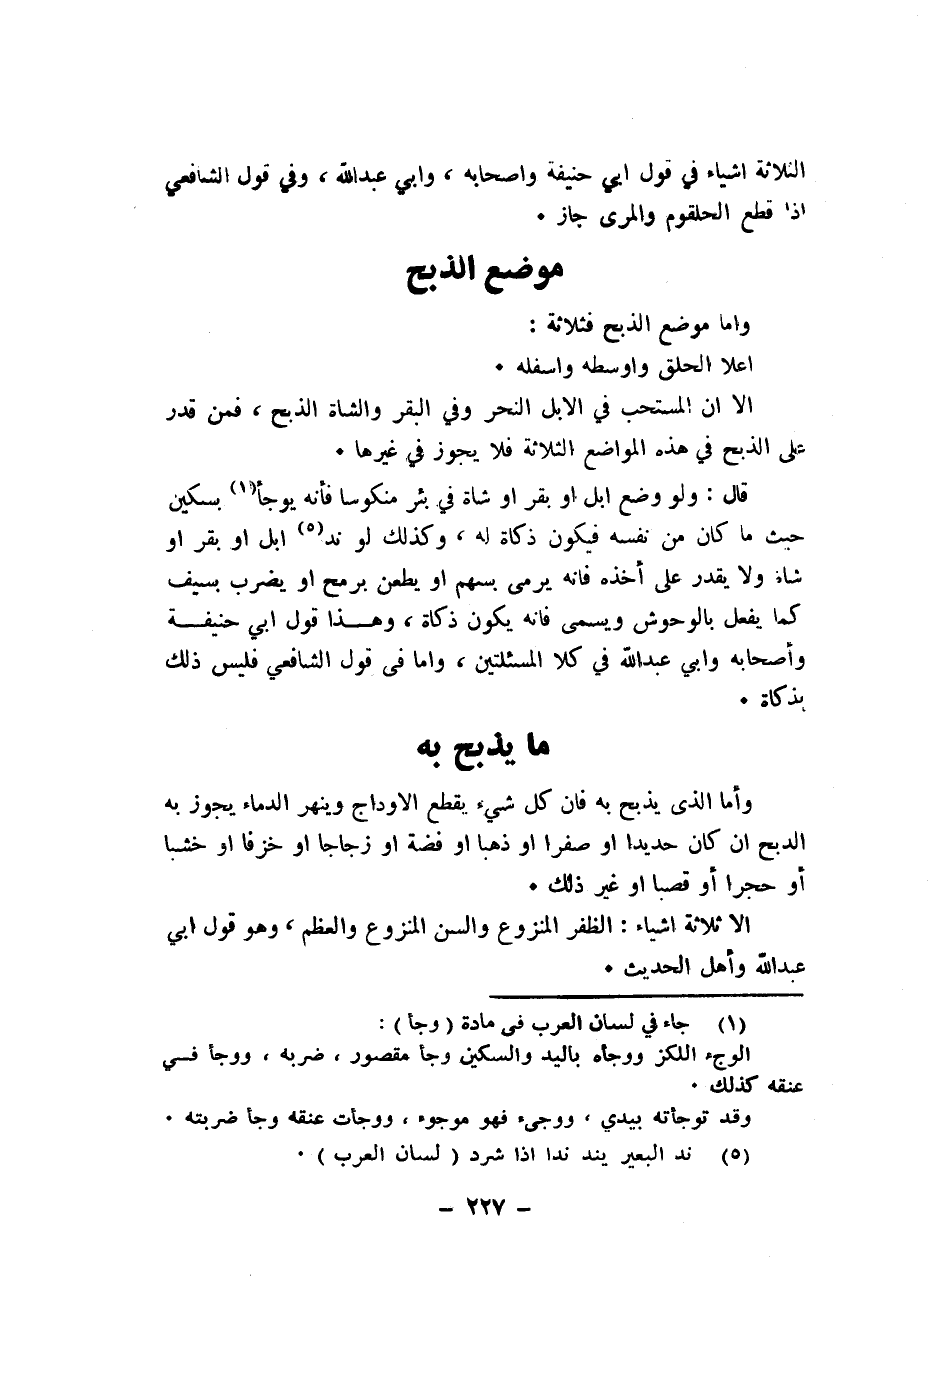 الثلاثة اشياء في قول ابي حنيفة واصحابه ، وابي عبدالله ، وفي قول الشافعي
اذا قطع الحلقوم والمرى جاز ٠
موضع الذبح
واما موضع الذبح فثلاثة :
اعلا الحلق واوسطه واسفله ٠
الا ان المستحب في الابل النحر وفي البقر والشاة الذبح ، فمن قدر
على الذبح في هذه المواضع الثلاثة فلا يجوز في غيرها ٠
قال : ولو وضع ابل او بقر او شاة في بئر منكوسا فأنه يوجأ(١) بسكين
حيث ما كان من نفسه فيكون ذكاة له ، وكذلك لو ند(٥) ابل او بقر او
شاة ولا يقدر على أخذه فانه يرمى بسهم او يطعن برمح او يضرب بسيف
كما يفعل بالوحوش ويسمى فانه يكون ذكاة ، وهـــذا قول ابي حنيفـــة
وأصحابه وابي عبدالله في كلا المسئلتين ، واما فى قول الشافعي فليس ذلك
بذكاة ٠
ما يذبح به
وأما الذى يذبح به فان كل شيء يقطع الاوداج وينهر الدماء يجوز به
الذبح ان كان حديدا او صفرا او ذهبا او فضة او زجاجا او خزفا او خشبا
أو حجرا أو قصبا او غير ذلك ٠
الا ثلاثة اشياء : الظفر المنزوع والسن المنزوع والعظم ، وهو قول ابي
عبدالله وأهل الحديث ٠
(١) جاء في لسان العرب فى مادة ( وجأ ) :
الوجء اللكز ووجأه باليد والسكين وجأ مقصور ، ضربه ، ووجأ فـي
عنقه كذلك ٠
وقد توجأته بيدي ، ووجىء فهو موجوء ، ووجأت عنقه وجأ ضربته ٠
(٥) ند البعير يند ندا اذا شرد ( لسان العرب ) ٠
– ٢٢٧ –